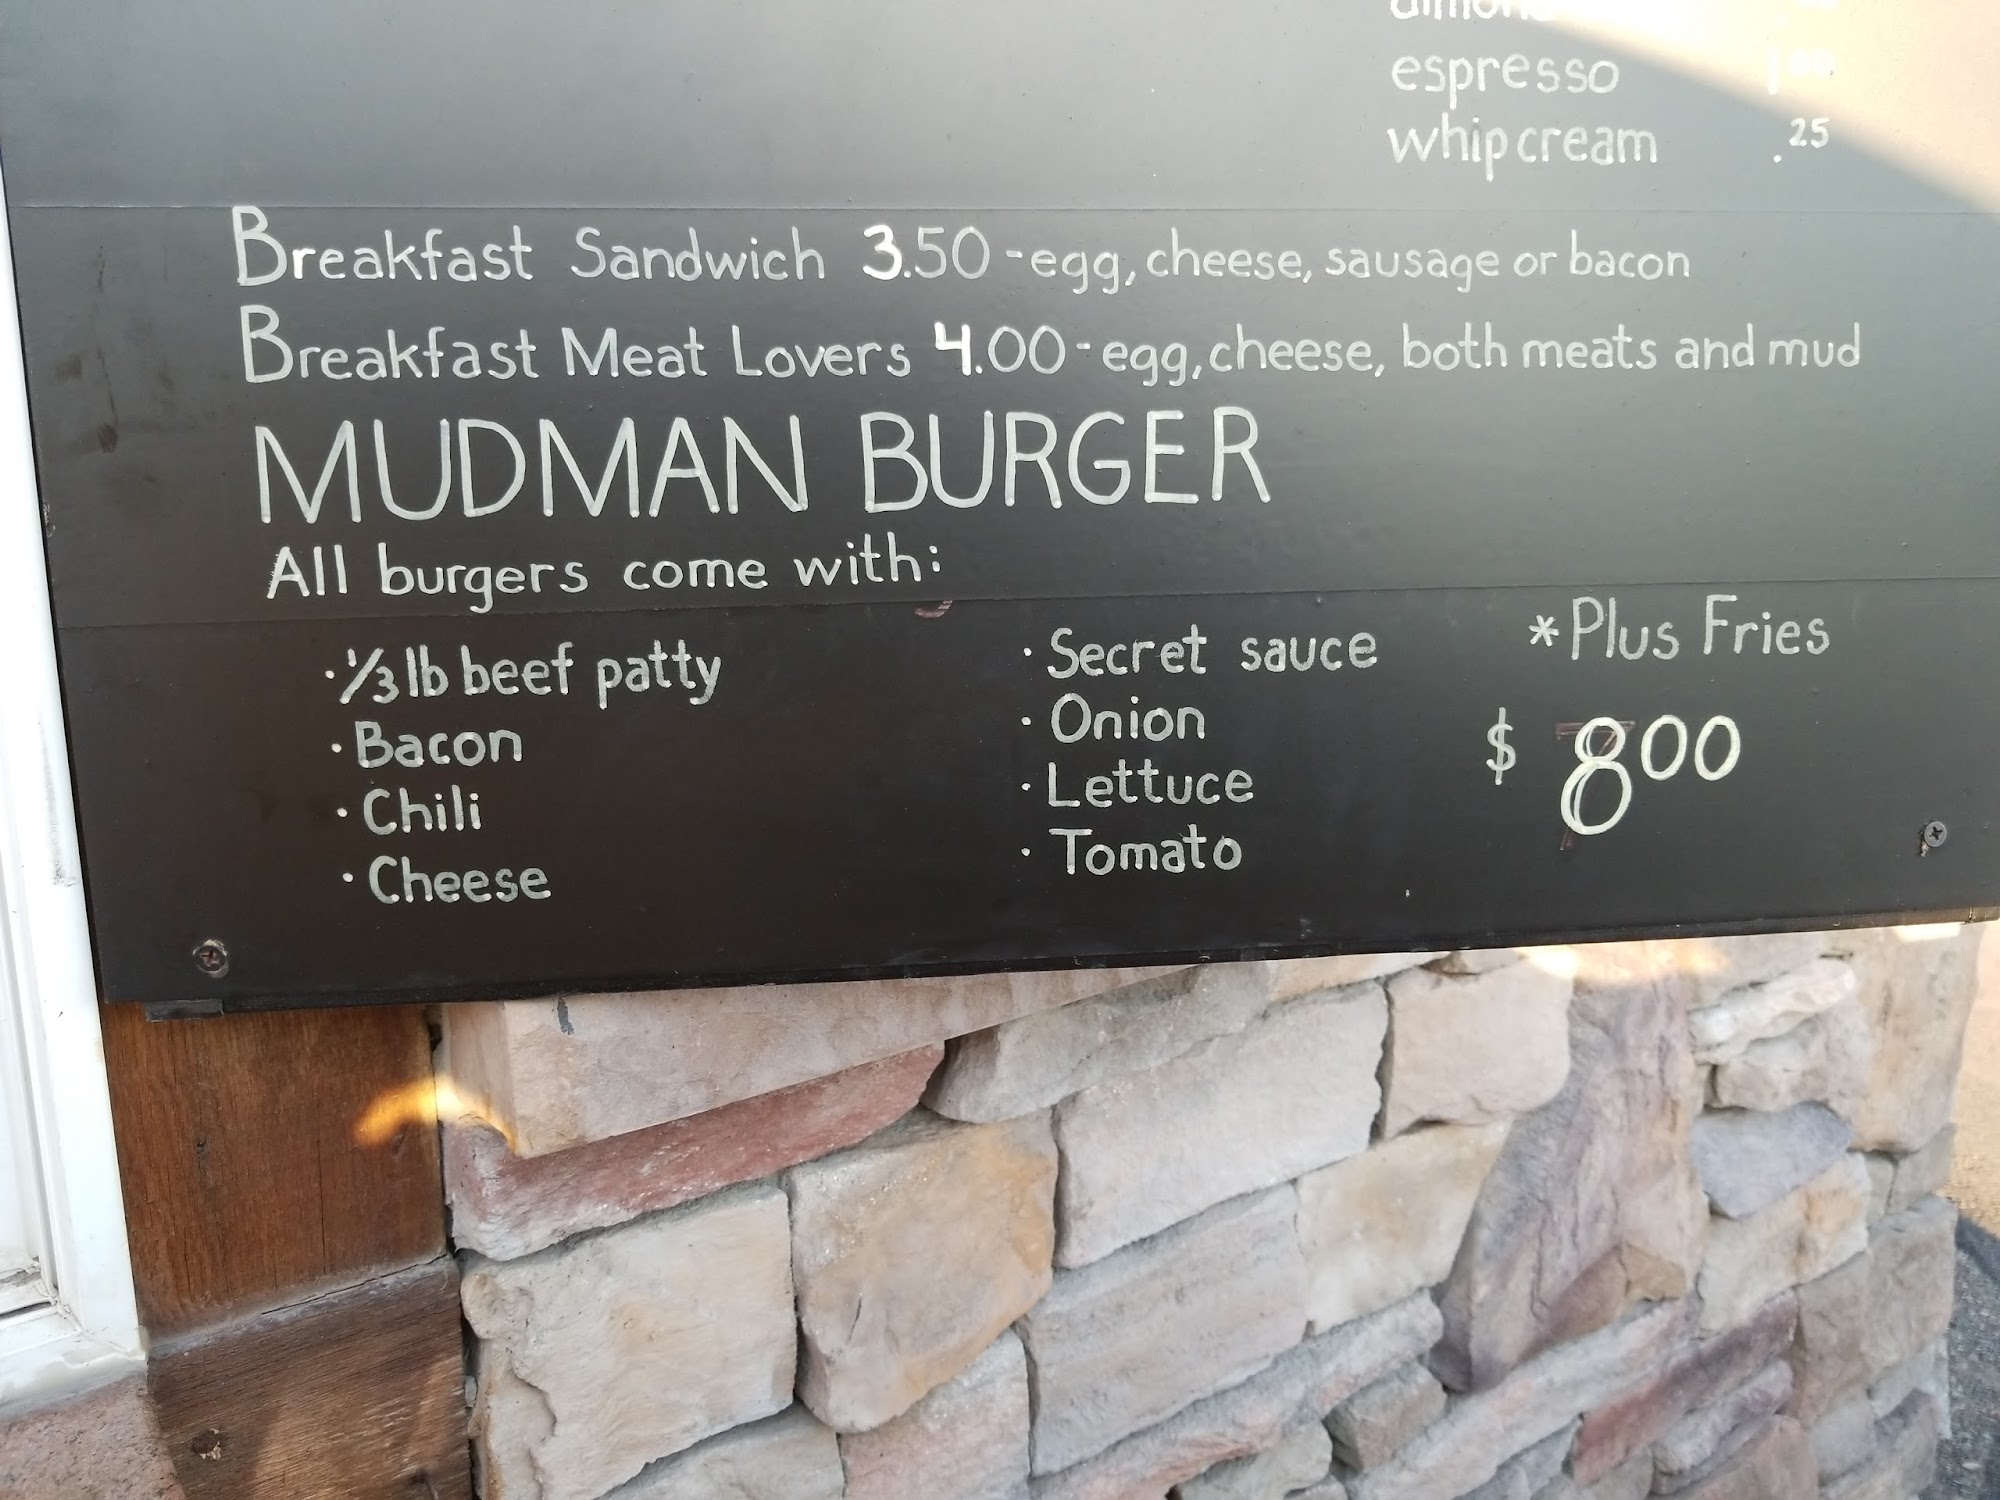 espresso 1.00
whip cream .25
Breakfast Sandwich 3.50 - egg, cheese, sausage or bacon
Breakfast Meat Lovers 4.00 - egg, cheese, both meats and mud
MUDMAN BURGER
All burgers come with:
· 1/3 lb beef patty
· Bacon
· Chili
· Cheese
· Secret sauce
· Onion
· Lettuce
· Tomato
*Plus Fries
$ 8.00